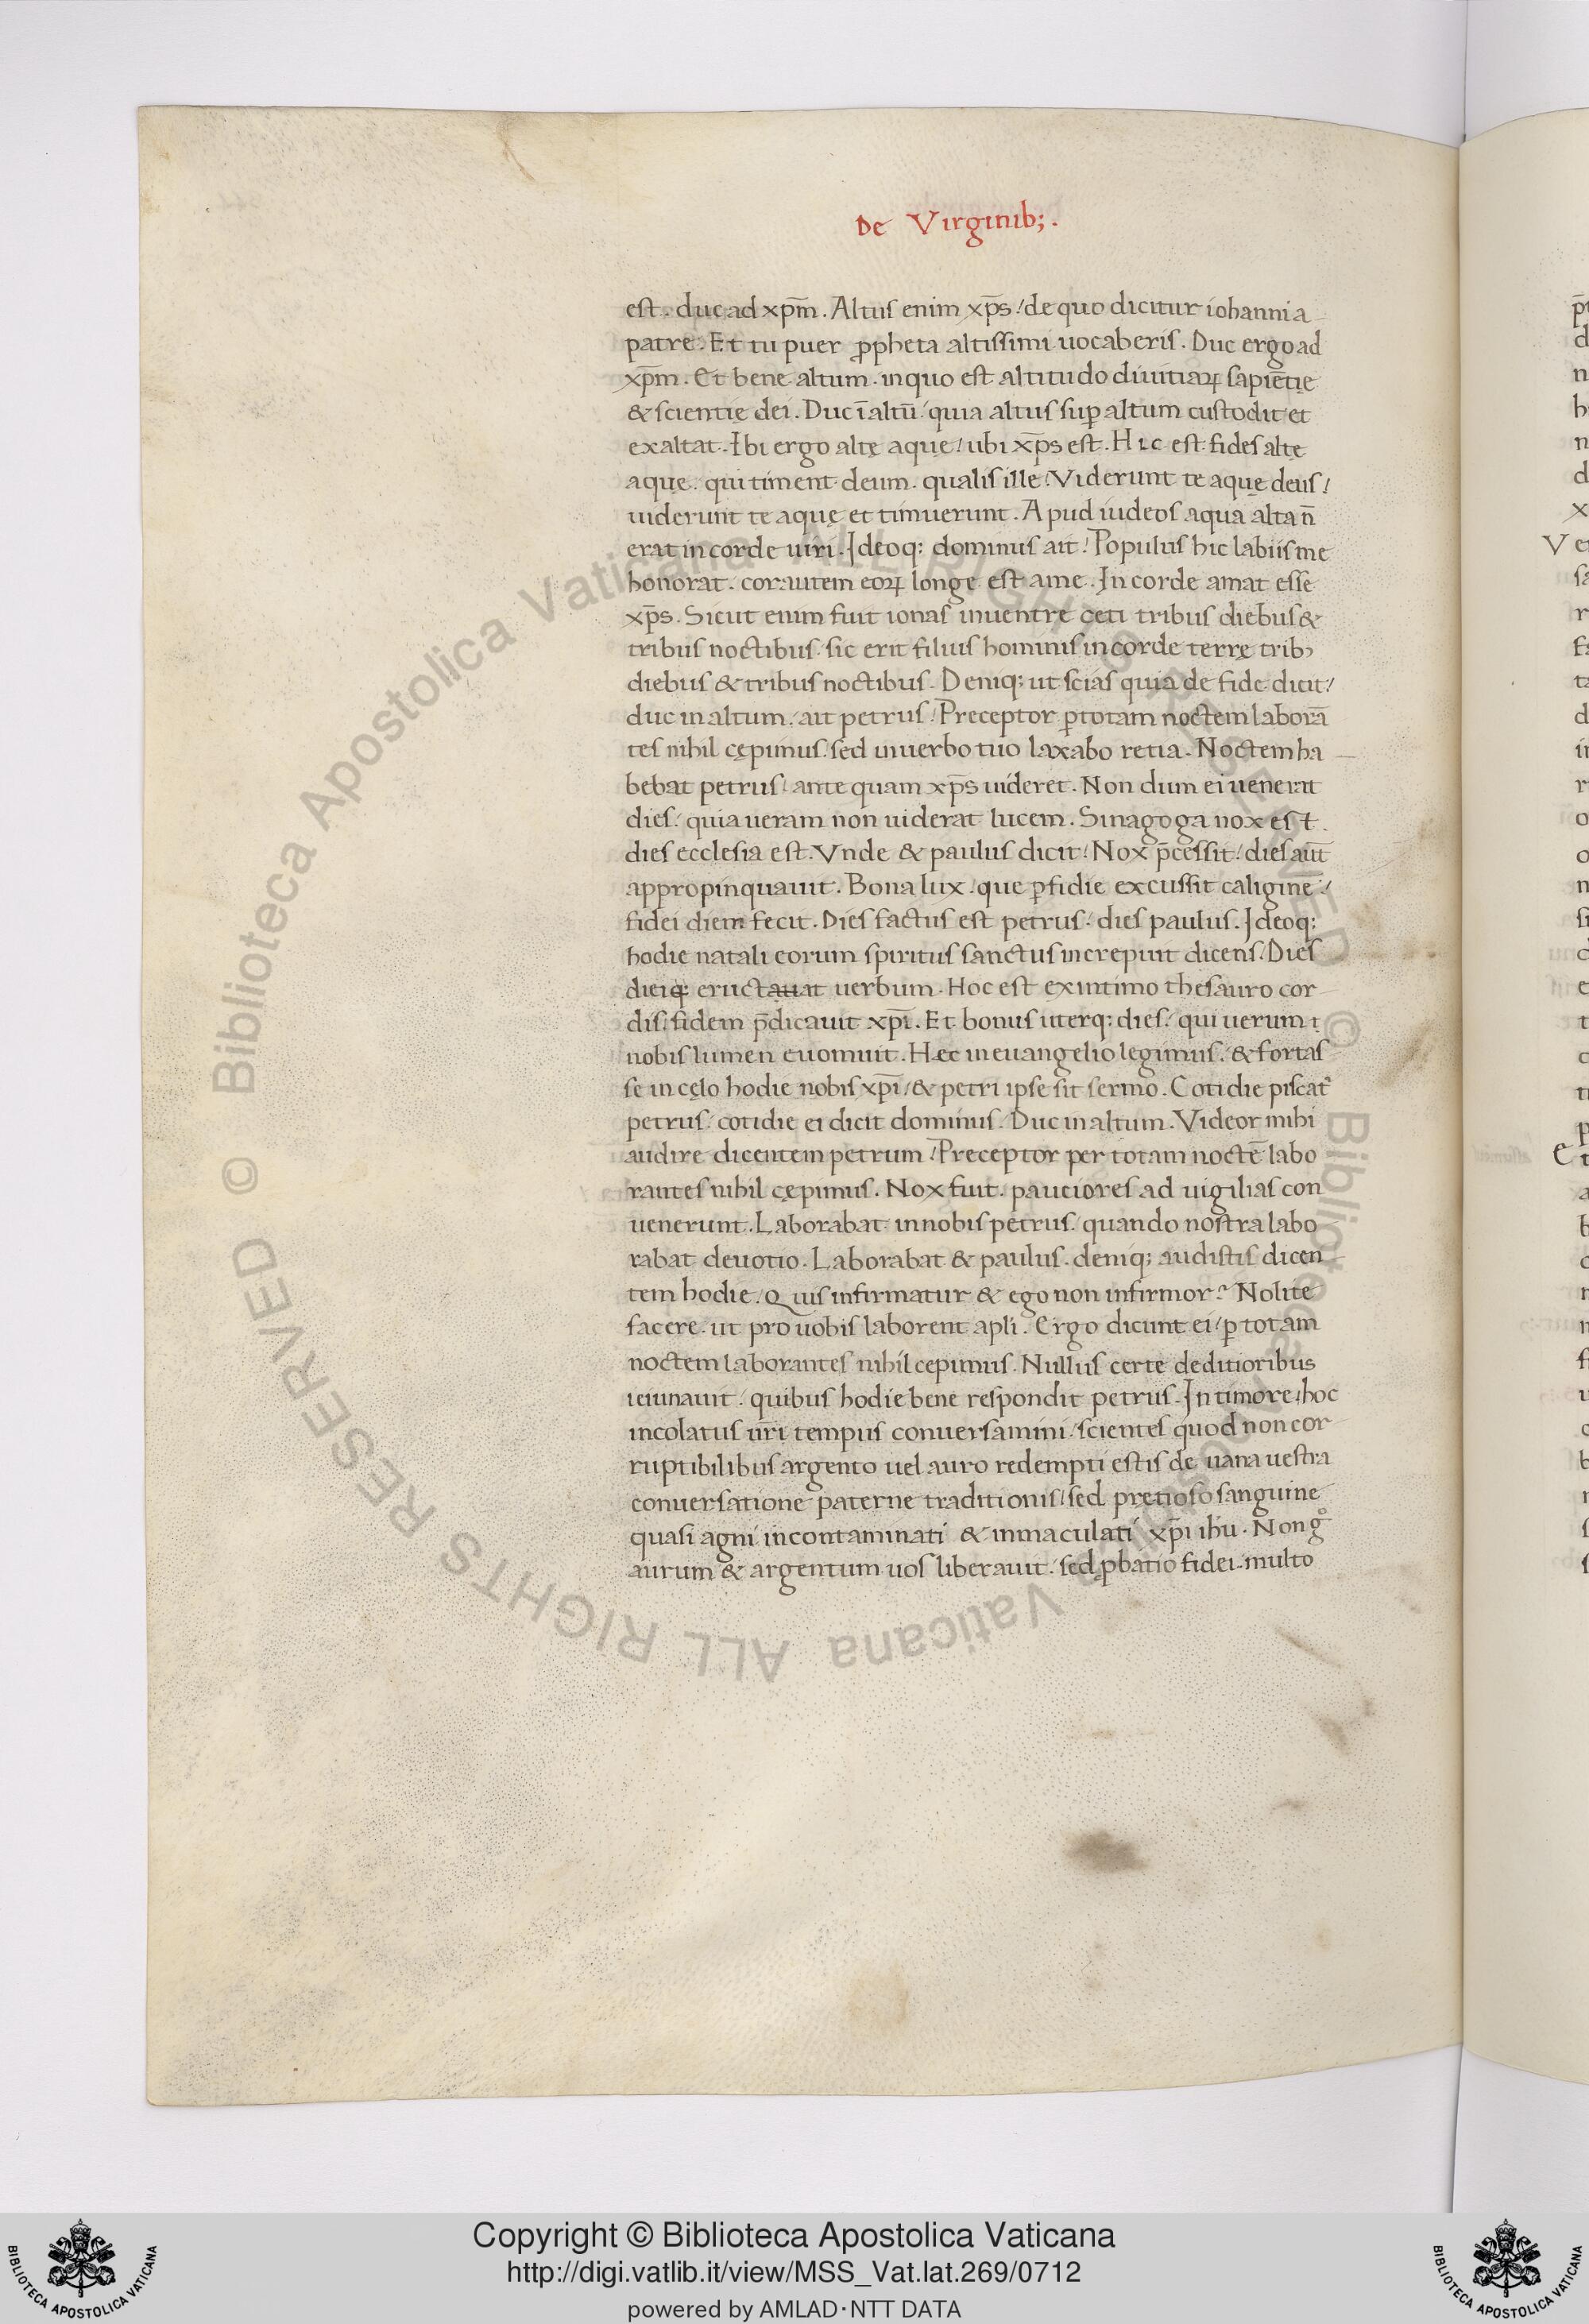 De Virginib;.
est. duc ad xp̄m. Altus enim xp̄s / de quo dicitur iohanni a
patre. Et tu puer ꝓpheta altissimi uocaberis. Duc ergo ad
xp̄m. Et bene altum. in quo est altitudo diuitiaꝝ sapiētię
& scientię dei. Duc ī altū / quia altus suꝑ altum custodit et
exaltat. Ibi ergo altę aquę / ubi xp̄s est. Hic est fides altę
aquę. qui timent deum. qualis ille / Viderunt te aquę deus /
uiderunt te aquę et timuerunt. Apud iudeos aqua alta n̄
erat in corde uiri. Ideoq; dominus ait / Populus hic labiis me
honorat. cor autem eoꝝ longe est a me. In corde amat esse
xp̄s. Sicut enim fuit ionas in uentre ceti tribus diebus &
tribus noctibus / sic erit filius hominis in corde terrę trib;
diebus & tribus noctibus. Deniq; ut scias quia de fide dicit /
duc in altum / ait petrus / Preceptor ꝑ totam noctem laborā
tes nihil cępimus / sed in uerbo tuo laxabo retia. Noctem ha
bebat petrus / ante quam xp̄s uideret. Non dum ei uenerat
dies / quia ueram non uiderat lucem. Sinagoga nox est.
dies ecclesia est. Vnde & paulus dicit / Nox p̄cessit / dies aut̄
appropinquauit. Bona lux. que ꝑfidie excussit caliginē /
fidei diem fecit. Dies factus est petrus / dies paulus. Ideoq;
hodie natali eorum spiritus sanctus increpuit dicens / Dies
diei q; eructauat uerbum. Hoc est ex intimo thesauro cor
dis / fidem p̄dicauit xp̄i. Et bonus uterq; dies / qui uerum i
nobis lumen euomuit. Hec in euangelio legimus / & fortas
se in cęlo hodie nobis xp̄i / & petri ipse sit sermo. Cotidie piscat̉
petrus / cotidie ei dicit dominus / Duc in altum. Videor mihi
audire dicentem petrum / Preceptor per totam noctē labo
rantes nihil cępimus. Nox fuit. pauciores ad uigilias con
uenerunt. Laborabat in nobis petrus / quando nostra labo
rabat deuotio. Laborabat & paulus. deniq; audistis dicen
tem hodie / Quis infirmatur & ego non infirmor? Nolite
facere. ut pro uobis laborent apl̄i. Ergo dicunt ei / ꝑ totam
noctem laborantes nihil cepimus. Nullus certe de ditioribus
ieiunauit / quibus hodie bene respondit petrus. In timore / hoc
incolatus ūri tempus conuersamini / scientes quod non cor
ruptibilibus argento uel auro redempti estis de uana uestra
conuersatione paterne traditionis / sed pretioso sanguine
quasi agni incontaminati & inmaculati xp̄i ih̄u. Non gͦ
aurum & argentum uos liberauit / sed ꝓbatio fidei. multo
Copyright © Biblioteca Apostolica Vaticana
http://digi.vatlib.it/view/MSS_Vat.lat.269/0712
powered by AMLAD·NTT DATA
© Biblioteca Apostolica Vaticana ALL RIGHTS RESERVED
© Biblioteca Apostolica Vaticana ALL RIGHTS RESERVED
BIBLIOTECA APOSTOLICA VATICANA
BIBLIOTECA APOSTOLICA VATICANA